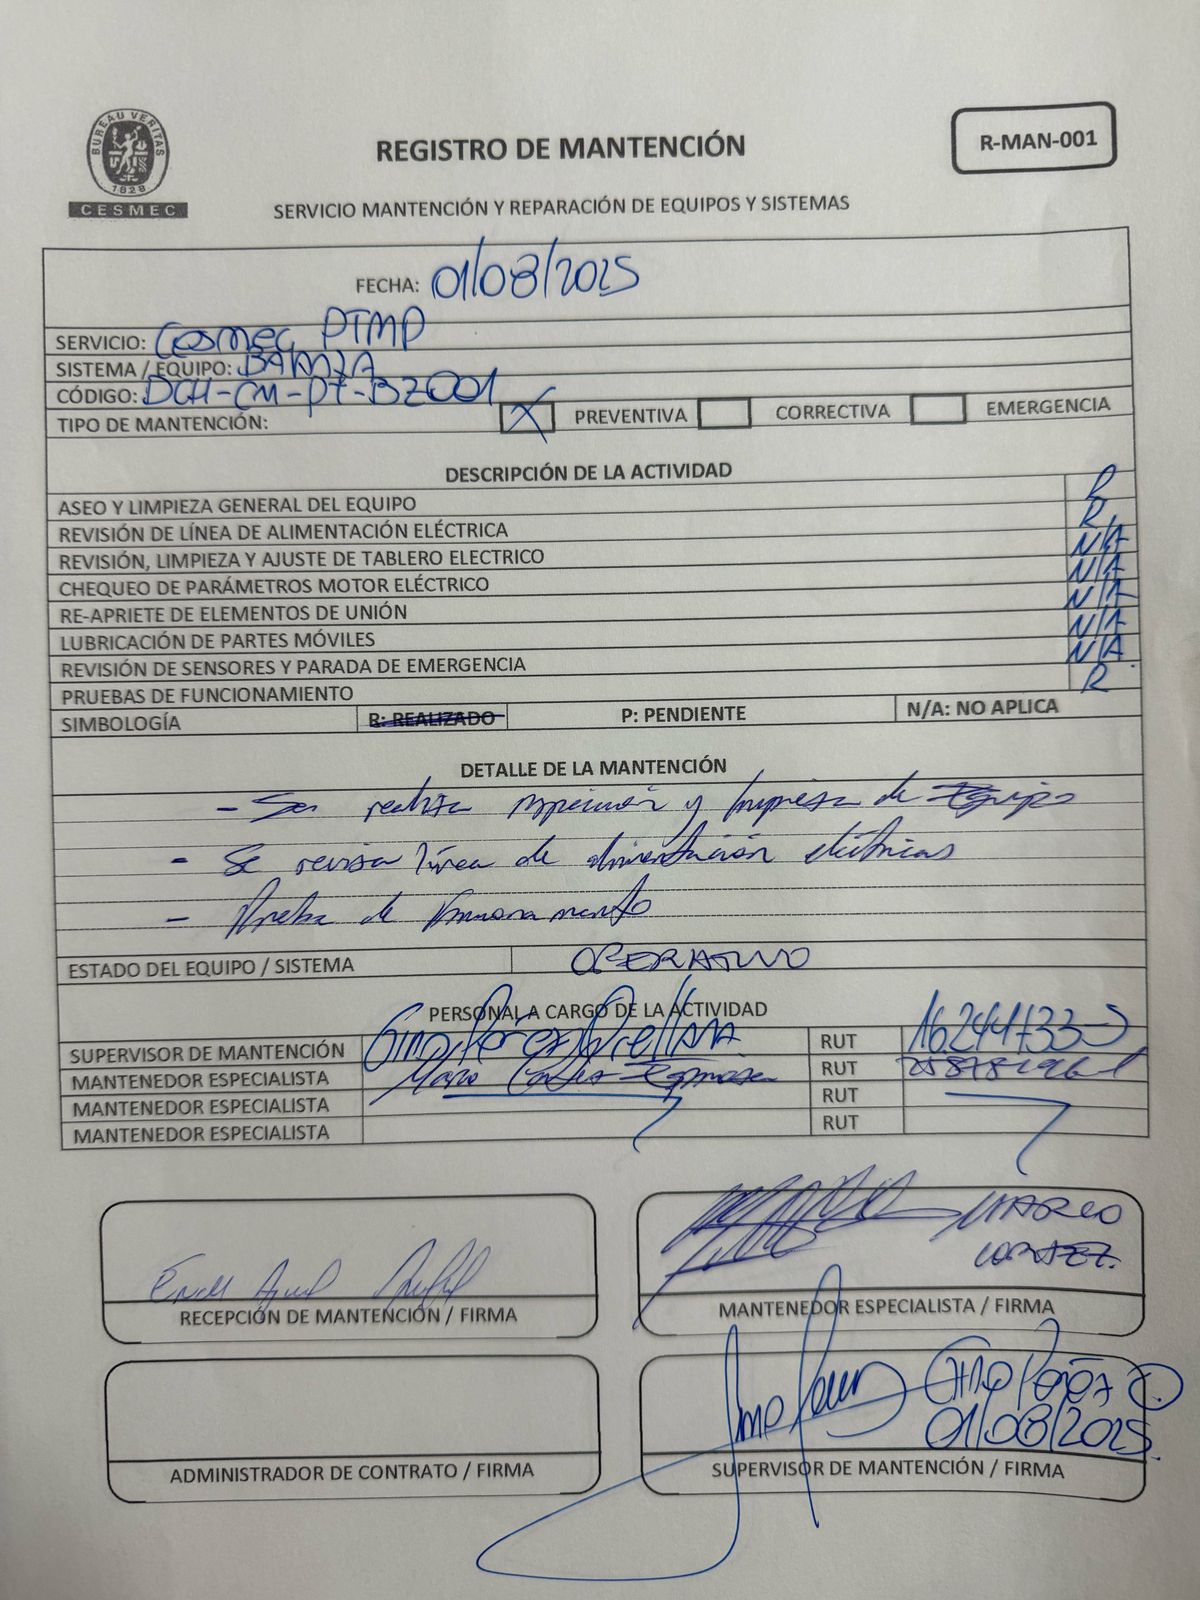 BUREAU VERITAS
1828
CESMEC
REGISTRO DE MANTENCIÓN
R-MAN-001
SERVICIO MANTENCIÓN Y REPARACIÓN DE EQUIPOS Y SISTEMAS
FECHA: 01/08/2025
SERVICIO: Cesmec PTMP
SISTEMA / EQUIPO: BALANZA
CÓDIGO: DCH-CM-PT-BZ001
TIPO DE MANTENCIÓN: X PREVENTIVA CORRECTIVA EMERGENCIA
DESCRIPCIÓN DE LA ACTIVIDAD
ASEO Y LIMPIEZA GENERAL DEL EQUIPO R
REVISIÓN DE LÍNEA DE ALIMENTACIÓN ELÉCTRICA R
REVISIÓN, LIMPIEZA Y AJUSTE DE TABLERO ELECTRICO N/A
CHEQUEO DE PARÁMETROS MOTOR ELÉCTRICO N/A
RE-APRIETE DE ELEMENTOS DE UNIÓN N/A
LUBRICACIÓN DE PARTES MÓVILES N/A
REVISIÓN DE SENSORES Y PARADA DE EMERGENCIA N/A
PRUEBAS DE FUNCIONAMIENTO R
SIMBOLOGÍA R: REALIZADO P: PENDIENTE N/A: NO APLICA
DETALLE DE LA MANTENCIÓN
- Se realiza inspección y limpieza de Equipo
- Se revisa línea de alimentación eléctricas
- Prueba de funcionamiento
ESTADO DEL EQUIPO / SISTEMA OPERATIVO
PERSONAL A CARGO DE LA ACTIVIDAD
SUPERVISOR DE MANTENCIÓN Gino Pérez Orellana RUT 16.244.733-5
MANTENEDOR ESPECIALISTA RUT
MANTENEDOR ESPECIALISTA RUT
MANTENEDOR ESPECIALISTA RUT
MARCO
RECEPCIÓN DE MANTENCIÓN / FIRMA
MANTENEDOR ESPECIALISTA / FIRMA
Gino Pérez O.
01/08/2025
ADMINISTRADOR DE CONTRATO / FIRMA
SUPERVISOR DE MANTENCIÓN / FIRMA